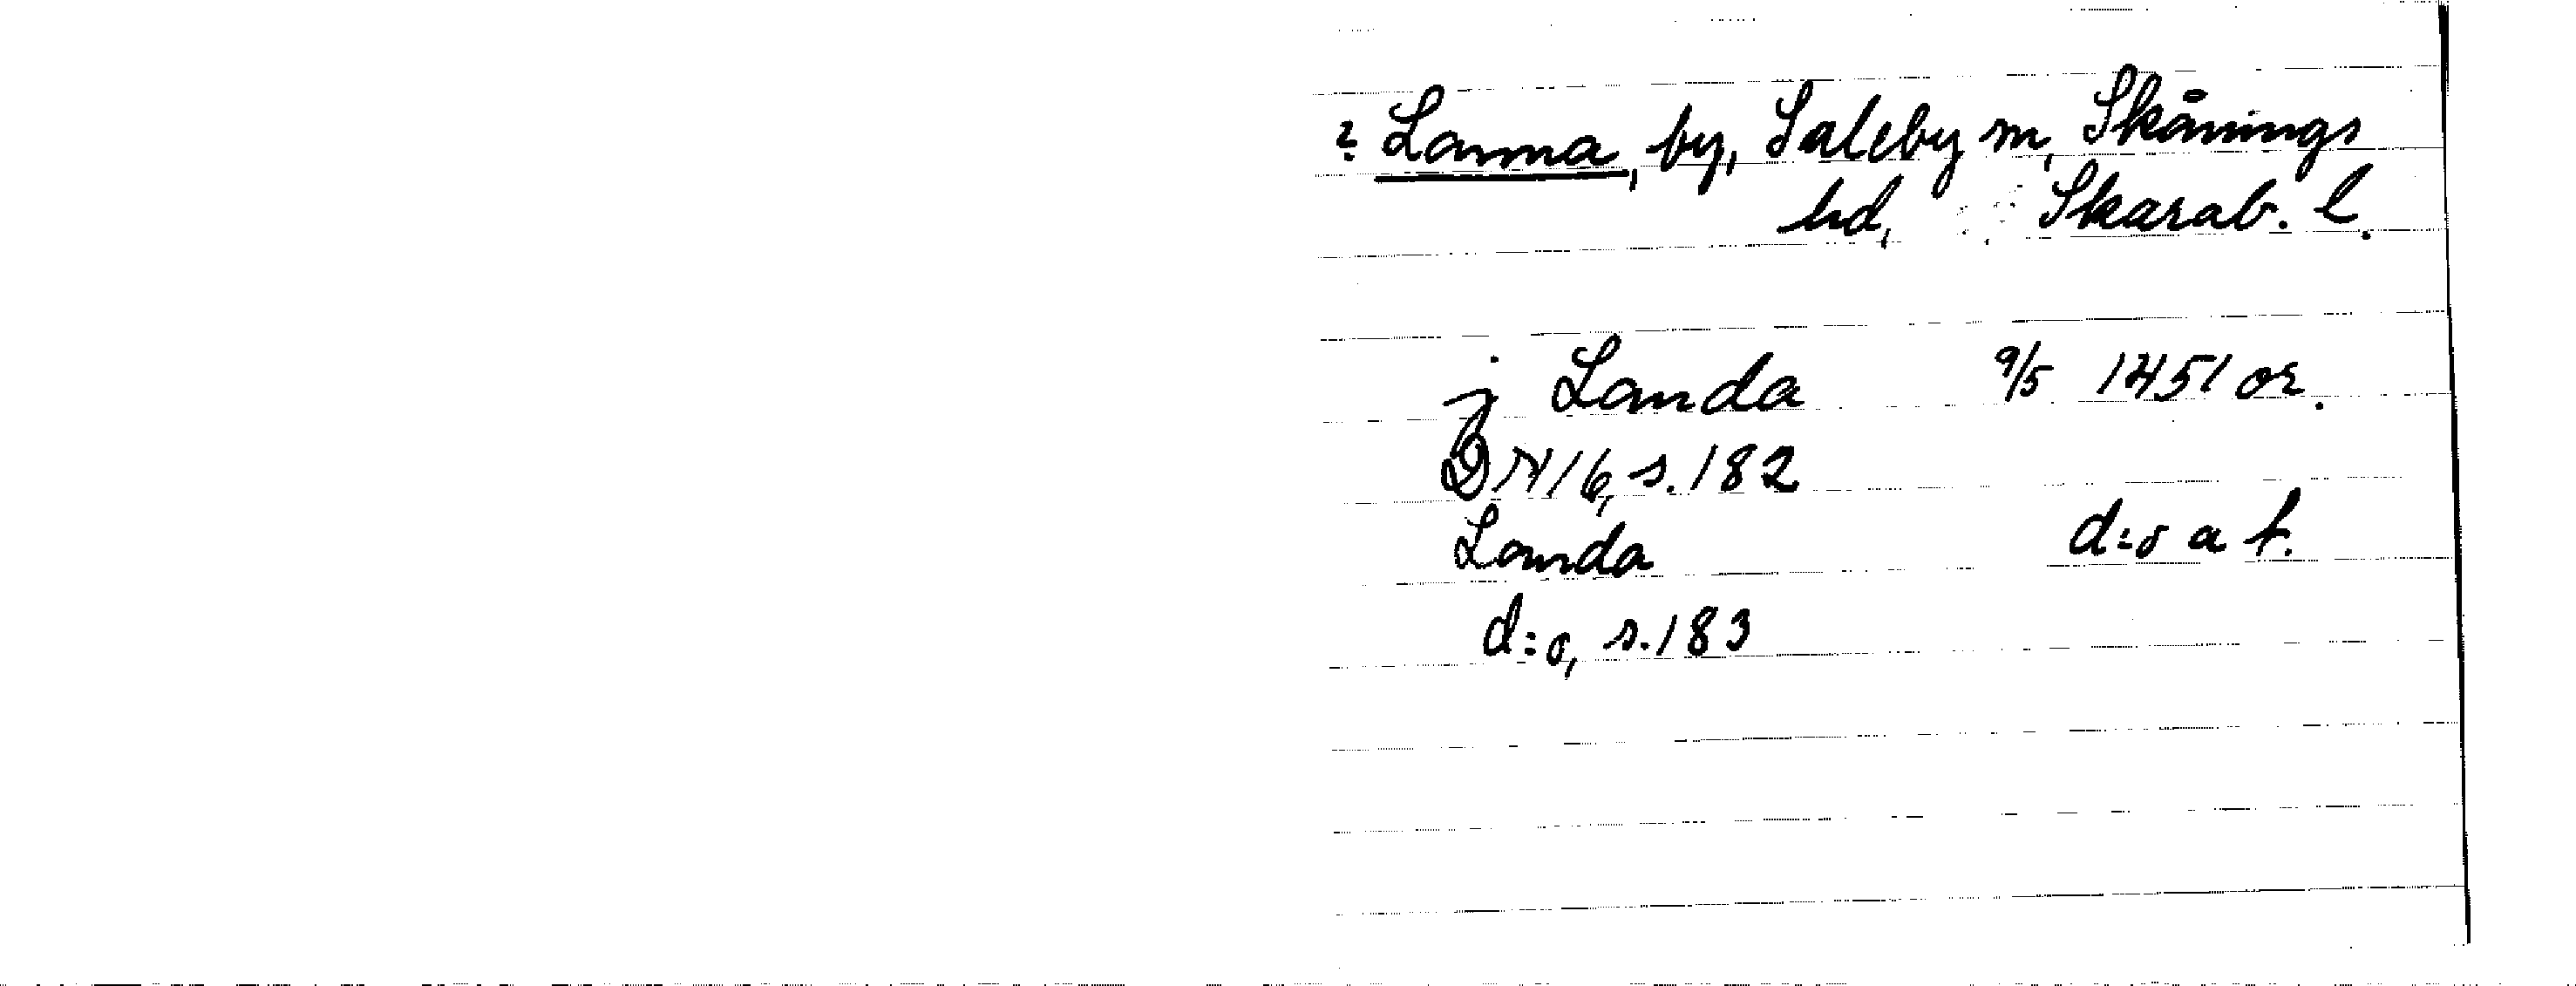 ? Lanna, by, Saleby sn, Skånings
hd, Skarab. l.
j Landa 9/5 1451 or.
DN 16, s. 182
Landa d:o a f.
d:o, s. 183